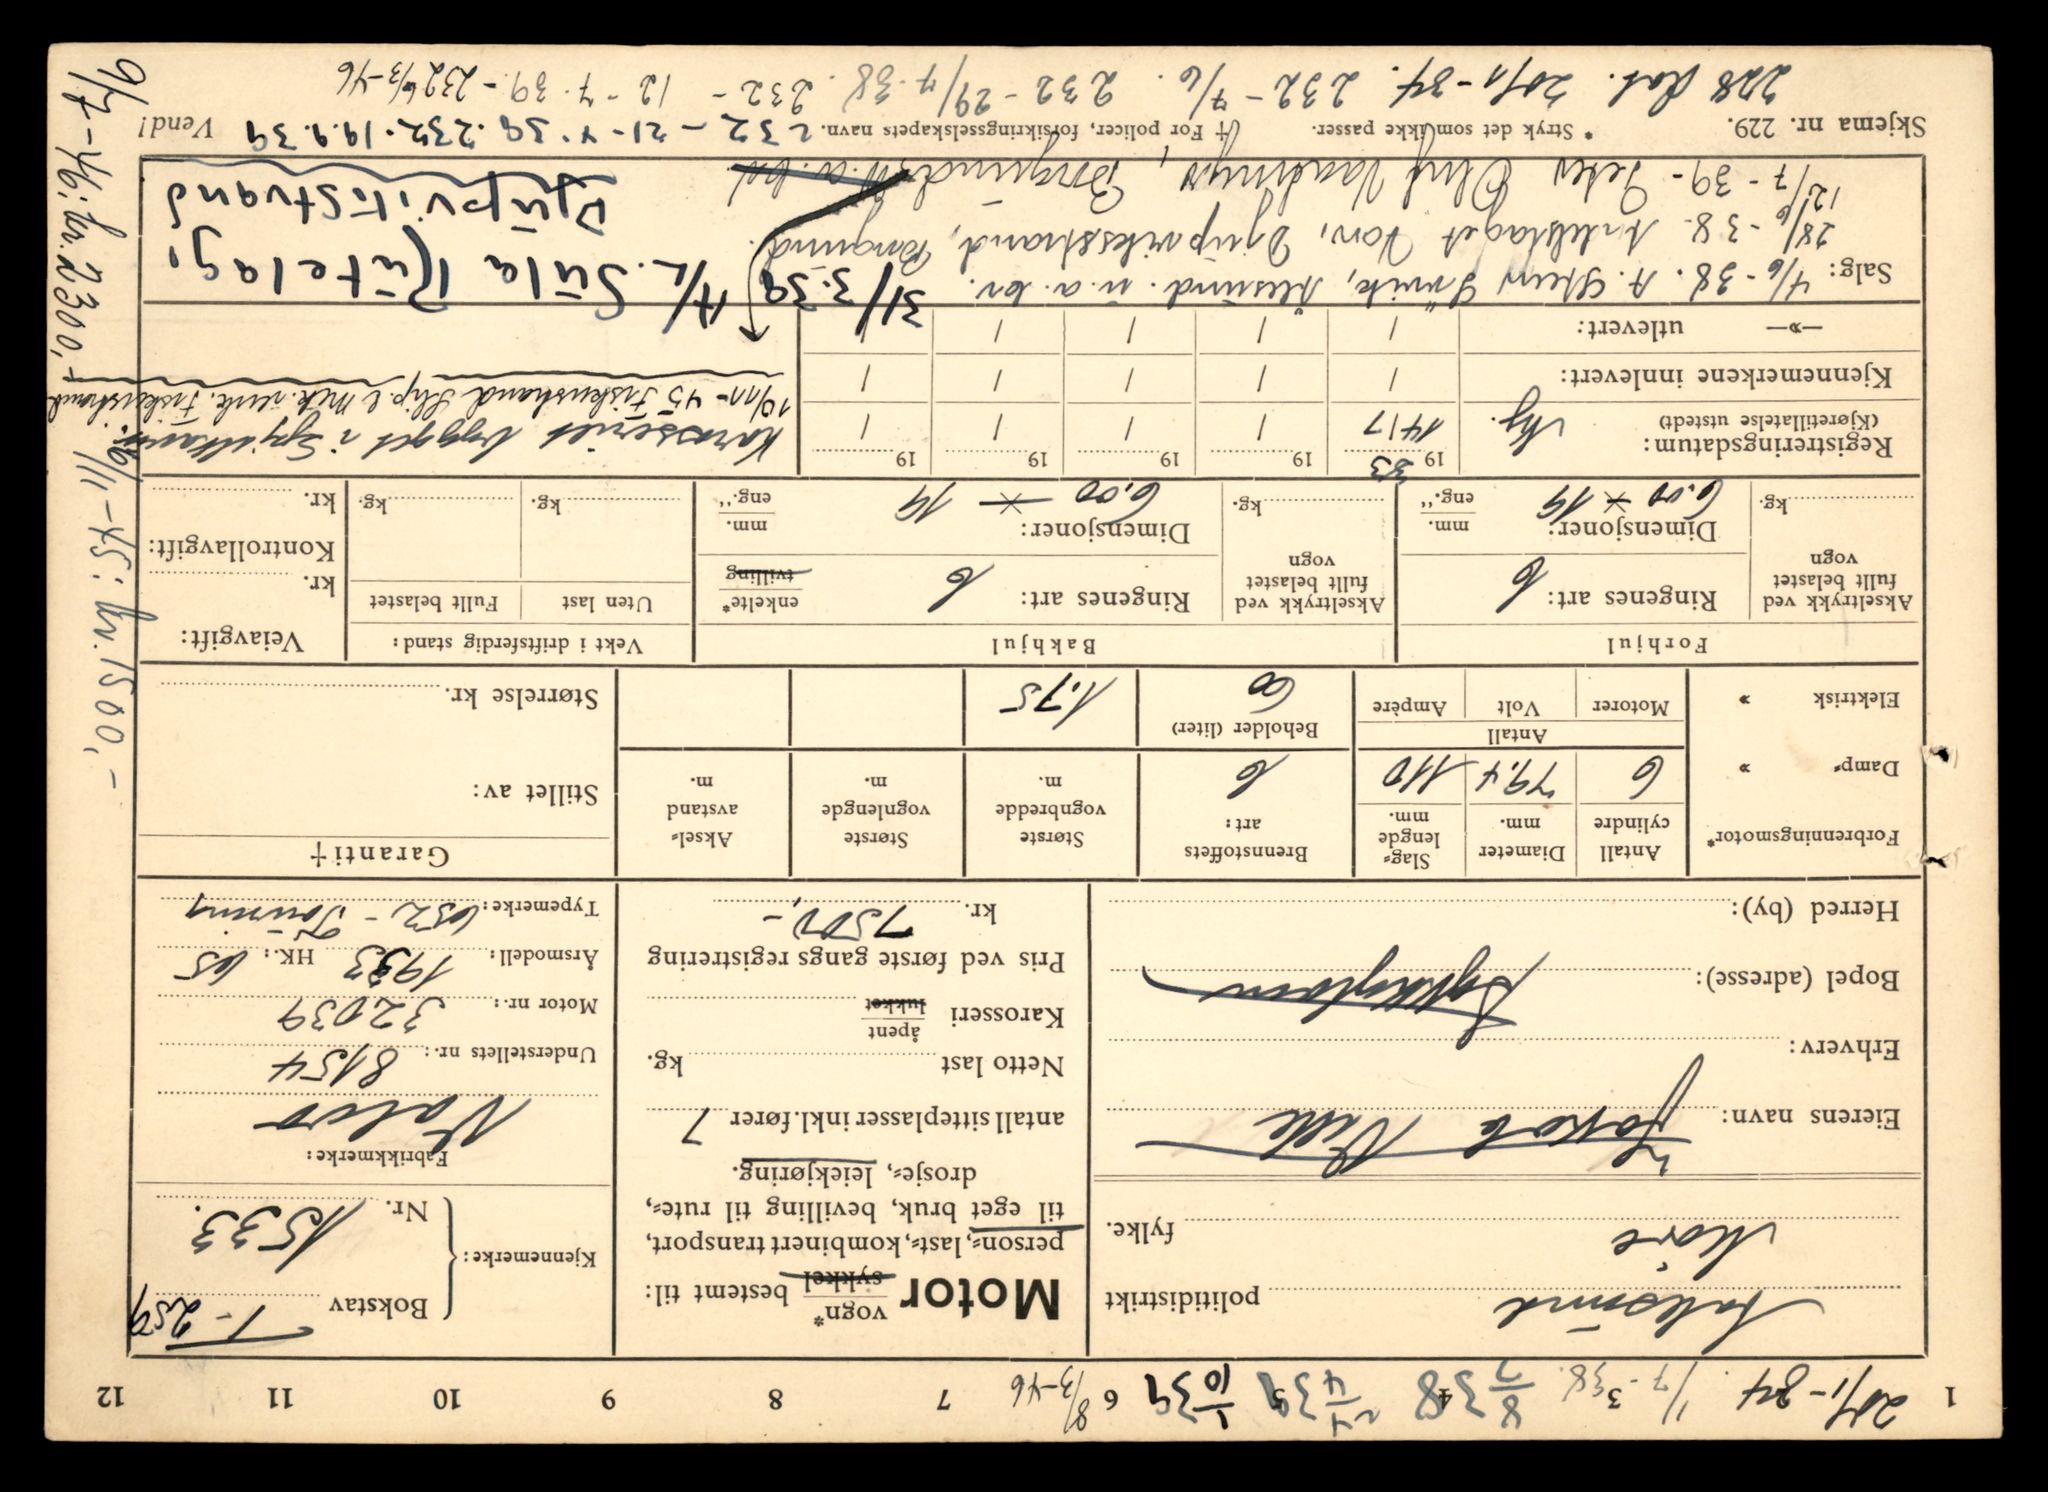 1 3 4 5 6 7 8 9 10 11 12
20/1-34 1/7-38. 8/7 38 24/4 39 1/10 39 8/3-46
politidistrikt
Møre fylke.
Eierens navn: Jakob
Erhverv:
Bopel (adresse): Sykkylven
Herred (by):
Motor vogn* sykkel bestemt til:
person-, last-, kombinert transport,
til eget bruk, bevilling til rute-,
drosje-, leiekjøring.
antall sitteplasser inkl. fører 7
Netto last kg.
Karosseri åpent lukket
Pris ved første gangs registrering
kr. 7500,-
Kjennemerke: Bokstav T-259
Nr. 1533.
Fabrikkmerke:
Volvo
Understellets nr.: 8154
Motor nr.: 32039
Årsmodell: 1933 HK.: 65
Typemerke: 652 - Touring
Forbrenningsmotor*
Damp- »
Elektrisk »
Antall cylindre 6
Diameter mm. 79,4
Slag-lengde mm. 110
Antall
Motorer Volt Ampère
Brennstoffets art: b
Beholder (liter) 60
Største vognbredde m. 1.75
Største vognlengde m.
Aksel-avstand m.
Garanti †
Stillet av:
Størrelse kr.
Forhjul
Akseltrykk ved fullt belastet vogn kg.
Ringenes art: b
Dimensjoner: 6.00 x 19 mm. eng."
Bakhjul
Akseltrykk ved fullt belastet vogn kg.
Ringenes art: b enkelte* tvilling
Dimensjoner: 6.00 x 19 mm. eng."
Vekt i driftsferdig stand:
Uten last Fullt belastet
kg. kg.
Veiavgift:
kr.
Kontrollavgift:
kr.
Registreringsdatum:
(Kjøretillatelse utstedt)
1933 19 19 19 19
14/7 / / / /
Kjennemerkene innlevert: / / / / /
—»— utlevert: / / / / /
Karosseriet bygget i
19/11-45 Fiskerstrand Slip & Mek. verk. Fiskerstrand
Salg: 4/6-38. A. Ålesund. n.a. kr.
28/6-38. Andelslaget Von, Djupviksstrand, Borgund.
12/7-39- Peder Olaf Borgund n.a. kr.
31/3.39 A/L. Sula Rutelag,
Djupvikstrand
Skjema nr. 229. * Stryk det som ikke passer. † For policer, forsikringsselskapets navn. Vend!
232-21-4.39. 232.19.9.39
228 dat. 20/1-34. 232-7/6. 232-29/7.38. 232- 12-7.39.- 232 6/3-46
16/11-45: kr. 1500,-
9/7-46: kr. 2300,-